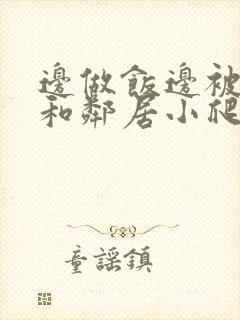 邊做飯邊被
和鄰居小爬
童謠鎮